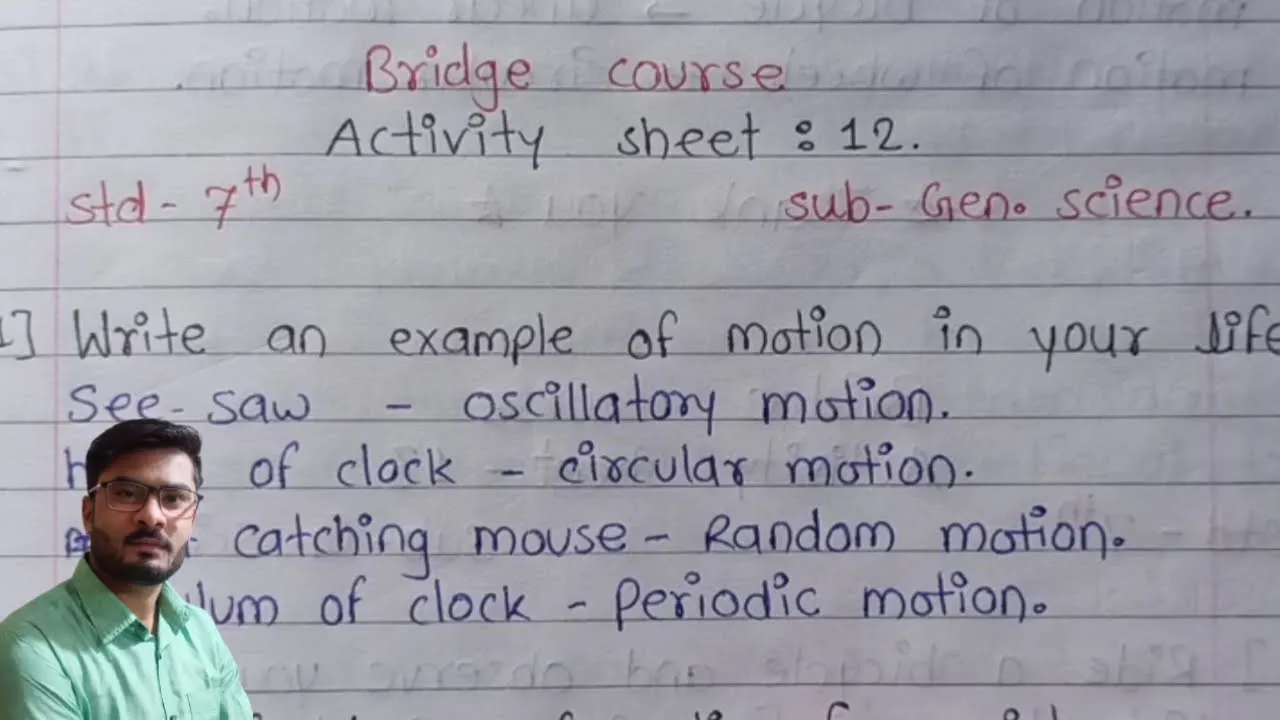 Bridge course
Activity sheet : 12.
Std - 7th sub- Gen. science.
1] Write an example of motion in your life
See-saw - oscillatory motion.
of clock - circular motion.
catching mouse - Random motion.
of clock - Periodic motion.